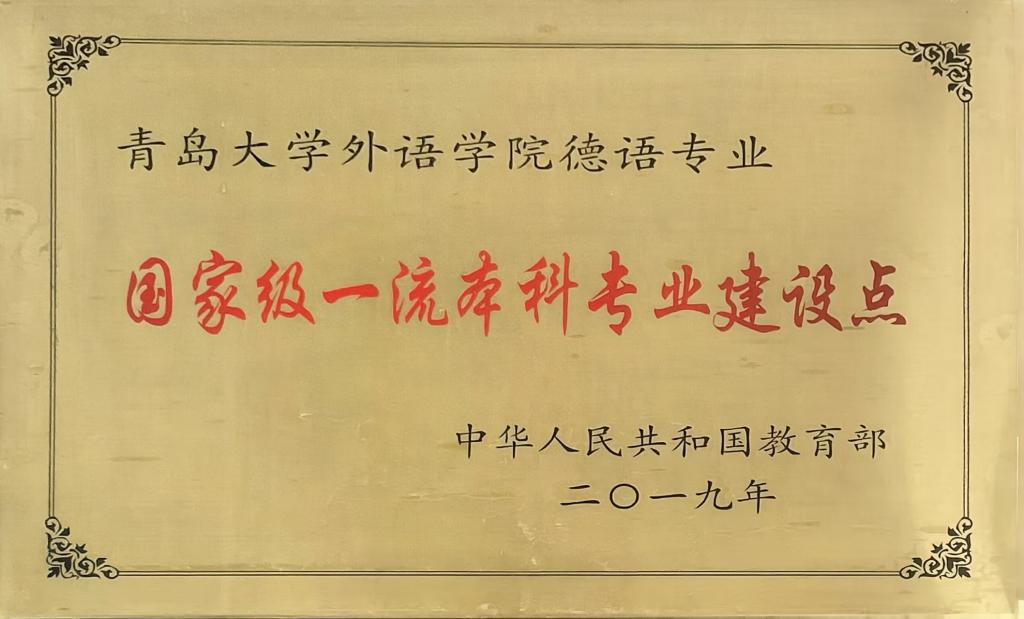 青岛大学外语学院德语专业
国家级一流本科专业建设点
中华人民共和国教育部
二〇一九年